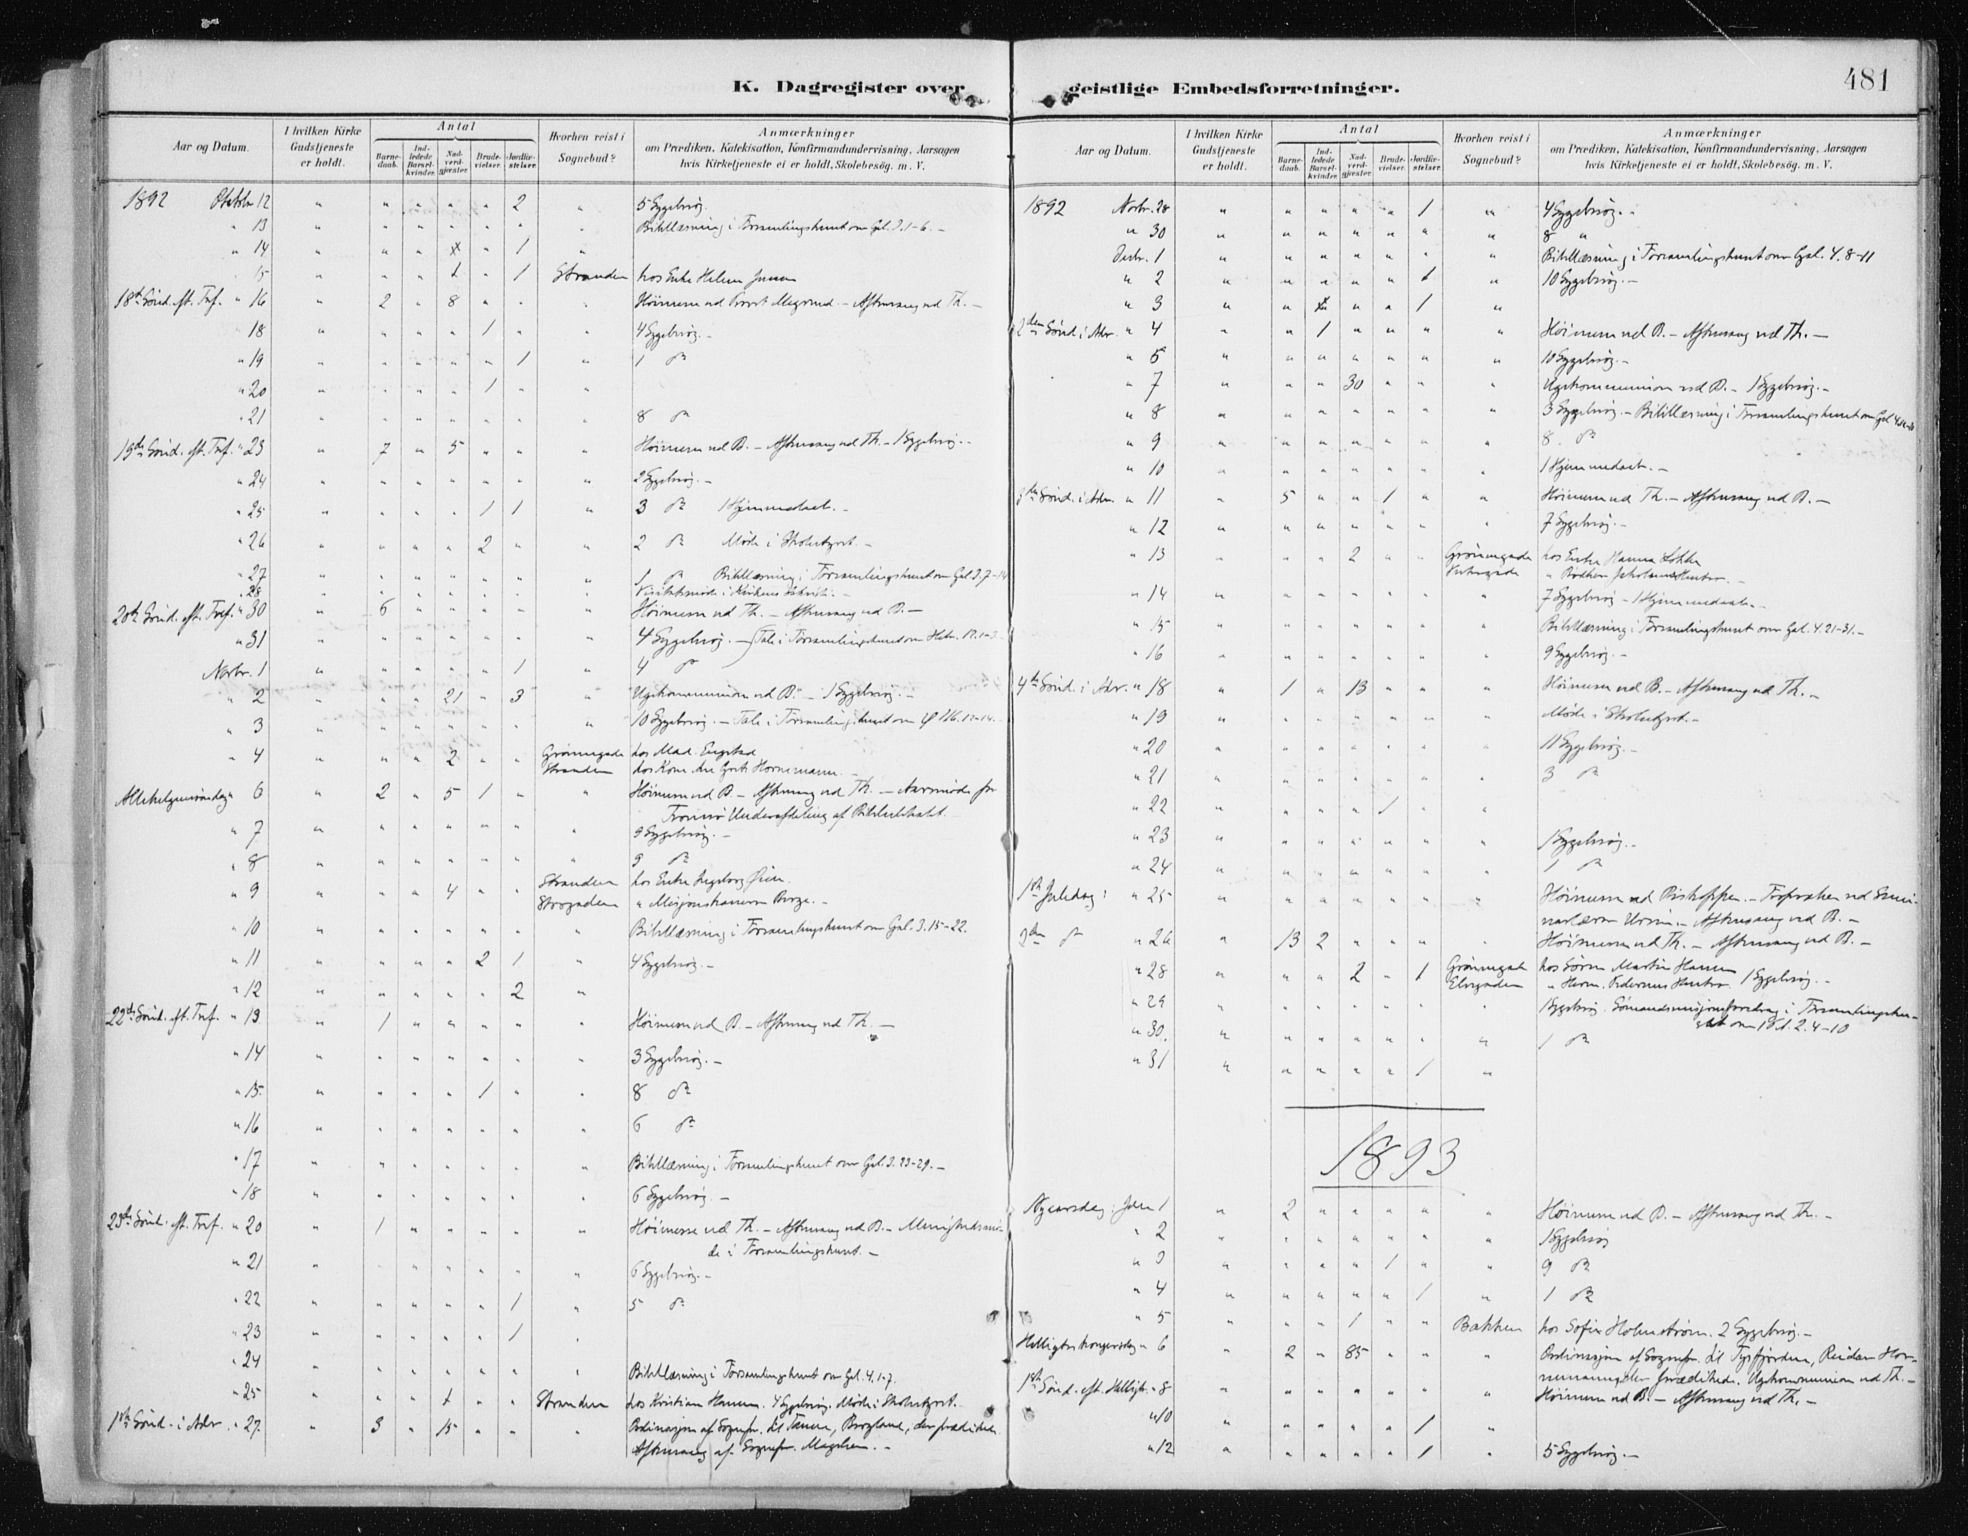 K. Dagregister over geistlige Embedsforretninger.
481
Aar og Datum.
I hvilken Kirke Gudstjeneste er holdt.
Antal
Barnedaab.
Indledede Barselkvinder.
Nadverdgjæster.
Brudevielser.
Jordfæstelser.
Hvorhen reist i Sognebud?
Anmærkninger
om Prædiken, Katekisation, Konfirmandundervisning, Aarsagen
hvis Kirketjeneste ei er holdt, Skolebesøg. m. V.
1892 Oktobr 12 " " " " " 2 " 5 Sygebesøg.
" 13 " " " " " " " Bibellæsning i Forsamlingshuset om Gal. 3. 1-6. -
" 14 " " " " 1 "
" 15 " " " 1 " 1 Stranden hos Enke Helene Jensen
18de Sønd. eft. Tref. " 16 " 2 " 8 " " " Høimesse ved Provst - Aftensang ved Th. -
" 18 " " " " 1 " " 4 Sygebesøg. -
" 19 " " " " " 1 " 1 do
" 20 " " " " 1 " "
" 21 " " " " " " " 8 do
19de Sønd. eft. Tref. " 23 " 7 " 5 " " " Høimesse ved B. - Aftensang ved Th. - 1 Sygebesøg. -
" 24 " " " " " " " 2 Sygebesøg. -
" 25 " " " " 1 1 " 3 do 1 Hjemmedaab. -
" 26 " " " " 2 " " 2 do Møde i Skolestyret. -
" 27 " " " " " " " 1 do Bibellæsning i Forsamlingshuset om Gal. 3. 7-14
" 28 " " " " " " "
20de Sønd. eft. Tref. " 30 " 6 " " " " " Høimesse ved Th. - Aftensang ved B. -
" 31 " " " " " " " 4 Sygebesøg. - Tale i Forsamlingshuset om Hebr. 12. 1-3
Novbr. 1 " " " " " 1 " 4 do
" 2 " " " 21 " 3 " Ugekommunion ved B. - 1 Sygebesøg. -
" 3 " " " " " " " 10 Sygebesøg. - Tale i Forsamlingshuset om
" 4 " " " 2 " " Grønnegade hos Mad. Engstad
Stranden hos Hornemann. -
Allehelgensøndag " 6 " 2 " 5 1 " " Høimesse ved B - Aftensang ved Th. - Aarsmøde for
Tromsø Underafdeling af Bibelselskabet.
" 7 " " " " " " " 9 Sygebesøg. -
" 8 " " " " " " " 9 do
" 9 " " " 4 " " Stranden hos Enke Ingeborg
Storgaden " Misjonskasserer
" 10 " " " " " " " Bibellæsning i Forsamlingshuset om Gal. 3. 15-22.
" 11 " " " " 2 1 " 4 Sygebesøg. -
" 12 " " " " " 2 "
22de Sønd. eft. Tref. " 13 " 1 " " " " " Høimesse ved B. - Aftensang ved Th. -
" 14 " " " " " " " 3 Sygebesøg. -
" 15 " " " " 1 " " 8 do
" 16 " " " " " " " 6 do
" 17 " " " " " " " Bibellæsning i Forsamlingshuset om Gal. 3. 23-29. -
" 18 " " " " " " " 6 Sygebesøg. -
23de Sønd. eft. Tref. " 20 " 1 " " " " " Høimesse ved Th. - Aftensang ved B. - Menighedsmø-
de i Forsamlingshuset. -
" 21 " " " " " " " 6 Sygebesøg. -
" 22 " " " " " 1 " 5 do
" 23 " " " " " 1 "
" 24 " " " " " " " Bibellæsning i Forsamlingshuset om Gal. 4. 1-7.
" 25 " " " 1 " " Stranden hos Kristian Hansen. 4 Sygebesøg. Møde i Skolestyret.
1ste Sønd. i Adv. " 27. " 3 " 15 " " " Ordinasjon af Sognepr. til Tanen, , der prædikede.
Aftensang af Sognepr. -
Aar og Datum.
I hvilken Kirke Gudstjeneste er holdt.
Antal
Barnedaab.
Indledede Barselkvinder.
Nadverdgjæster.
Brudevielser.
Jordfæstelser.
Hvorhen reist i Sognebud?
Anmærkninger
om Prædiken, Katekisation, Konfirmandundervisning, Aarsagen
hvis Kirketjeneste ei er holdt, Skolebesøg. m. V.
1892 Novbr. 28 " " " " " 1 " 4 Sygebesøg. -
" 30 " " " " " " " 8 "
Decbr. 1 " " " " " " " Bibellæsning i Forsamlingshuset om Gal. 4. 8-11
" 2 " " " " " 1 " 10 Sygebesøg. -
" 3 " " " " 1 "
2den Sønd. i Adv. " 4 " " 1 " " " " Høimesse ved B. - Aftensang ved Th. -
" 6 " " " " " " " 10 Sygebesøg. -
" 7 " " " 30 " " " Ugekommunion ved B. - 1 Sygebesøg. -
" 8 " " " " " " " 3 Sygebesøg. - Bibellæsning i Forsamlingshuset om Gal.
" 9 " " " " " " " 8 do
" 10 " " " " " " " 1 Hjemmedaab. -
3die Sønd. i Adv. " 11 " 5 " " 1 " " Høimesse ved Th. - Aftensang ved B. -
" 12 " " " " " " " 7 Sygebesøg. -
" 13 " " " 2 " " Grønnegade hos Enke Hanna
" 14 " " " " " " " 7 Sygebesøg - 1 Hjemmedaab. -
" 15 " " " " " " " Bibellæsning i Forsamlingshuset om Gal. 4. 21-31. -
" 16 " " " " " " " 9 Sygebesøg. -
4de Sønd. i Adv. " 18 " 1 " 13 " " " Høimesse ved B. - Aftensang ved Th. -
" 19 " " " " " " " Møde i Skolestyret. -
" 20 " " " " " " " 11 Sygebesøg. -
" 21 " " " " " " " 3 do
" 22 " " " " 1 " "
" 23 " " " " " " " 1 Sygebesøg. -
" 24 " " " " " " " 1 do
1ste Juledag: " 25 " " " " " " " Høimesse ved Biskoppen. - Froprædken ved Semi-
narlærer - Aftensang ved B. -
2den do " 26 " 13 2 " " " " Høimesse ved Th. - Aftensang ved B. -
" 28 " " " 2 " 1 Grønnegade hos Søren Martin Hansen
Elvegaden " Herm. Pedersens Hustru. 1 Sygebesøg. -
" 29 " " " " " " " 1 Sygebesøg. Sømandsmisjonsforedrag i Forsamlingshu-
set om 2. 4-10
" 30. " " " " " " " 1 do
" 31 " " " " " 1 "
1893
Nyaarsdag: Janr 1 " 2 " " " " " Høimesse ved B. - Aftensang ved Th. -
" 2 " " " " " " " 1 Sygebesøg
" 3 " " " " 1 " " 9 do
" 4 " " " " " 1 " 1 do
" 5 " " " 1 " " Bakken hos Sofie Holmstrøm. 2 Sygebesøg. -
Helligtrekongersdag " 6 " 2 " 85 " " " Ordinasjon af Sognepr. til Tysfjorden, Reidar Hor-
, der prædikede. Ugekommunion ved Th. -
1ste Sønd. eft. Helligtr. " 8 " " " " " " " Høimesse ved B. - Aftensang ved Th. -
" 10 " " " " " 1 "
" 12 " " " " " 1 " 5 Sygebesøg. -